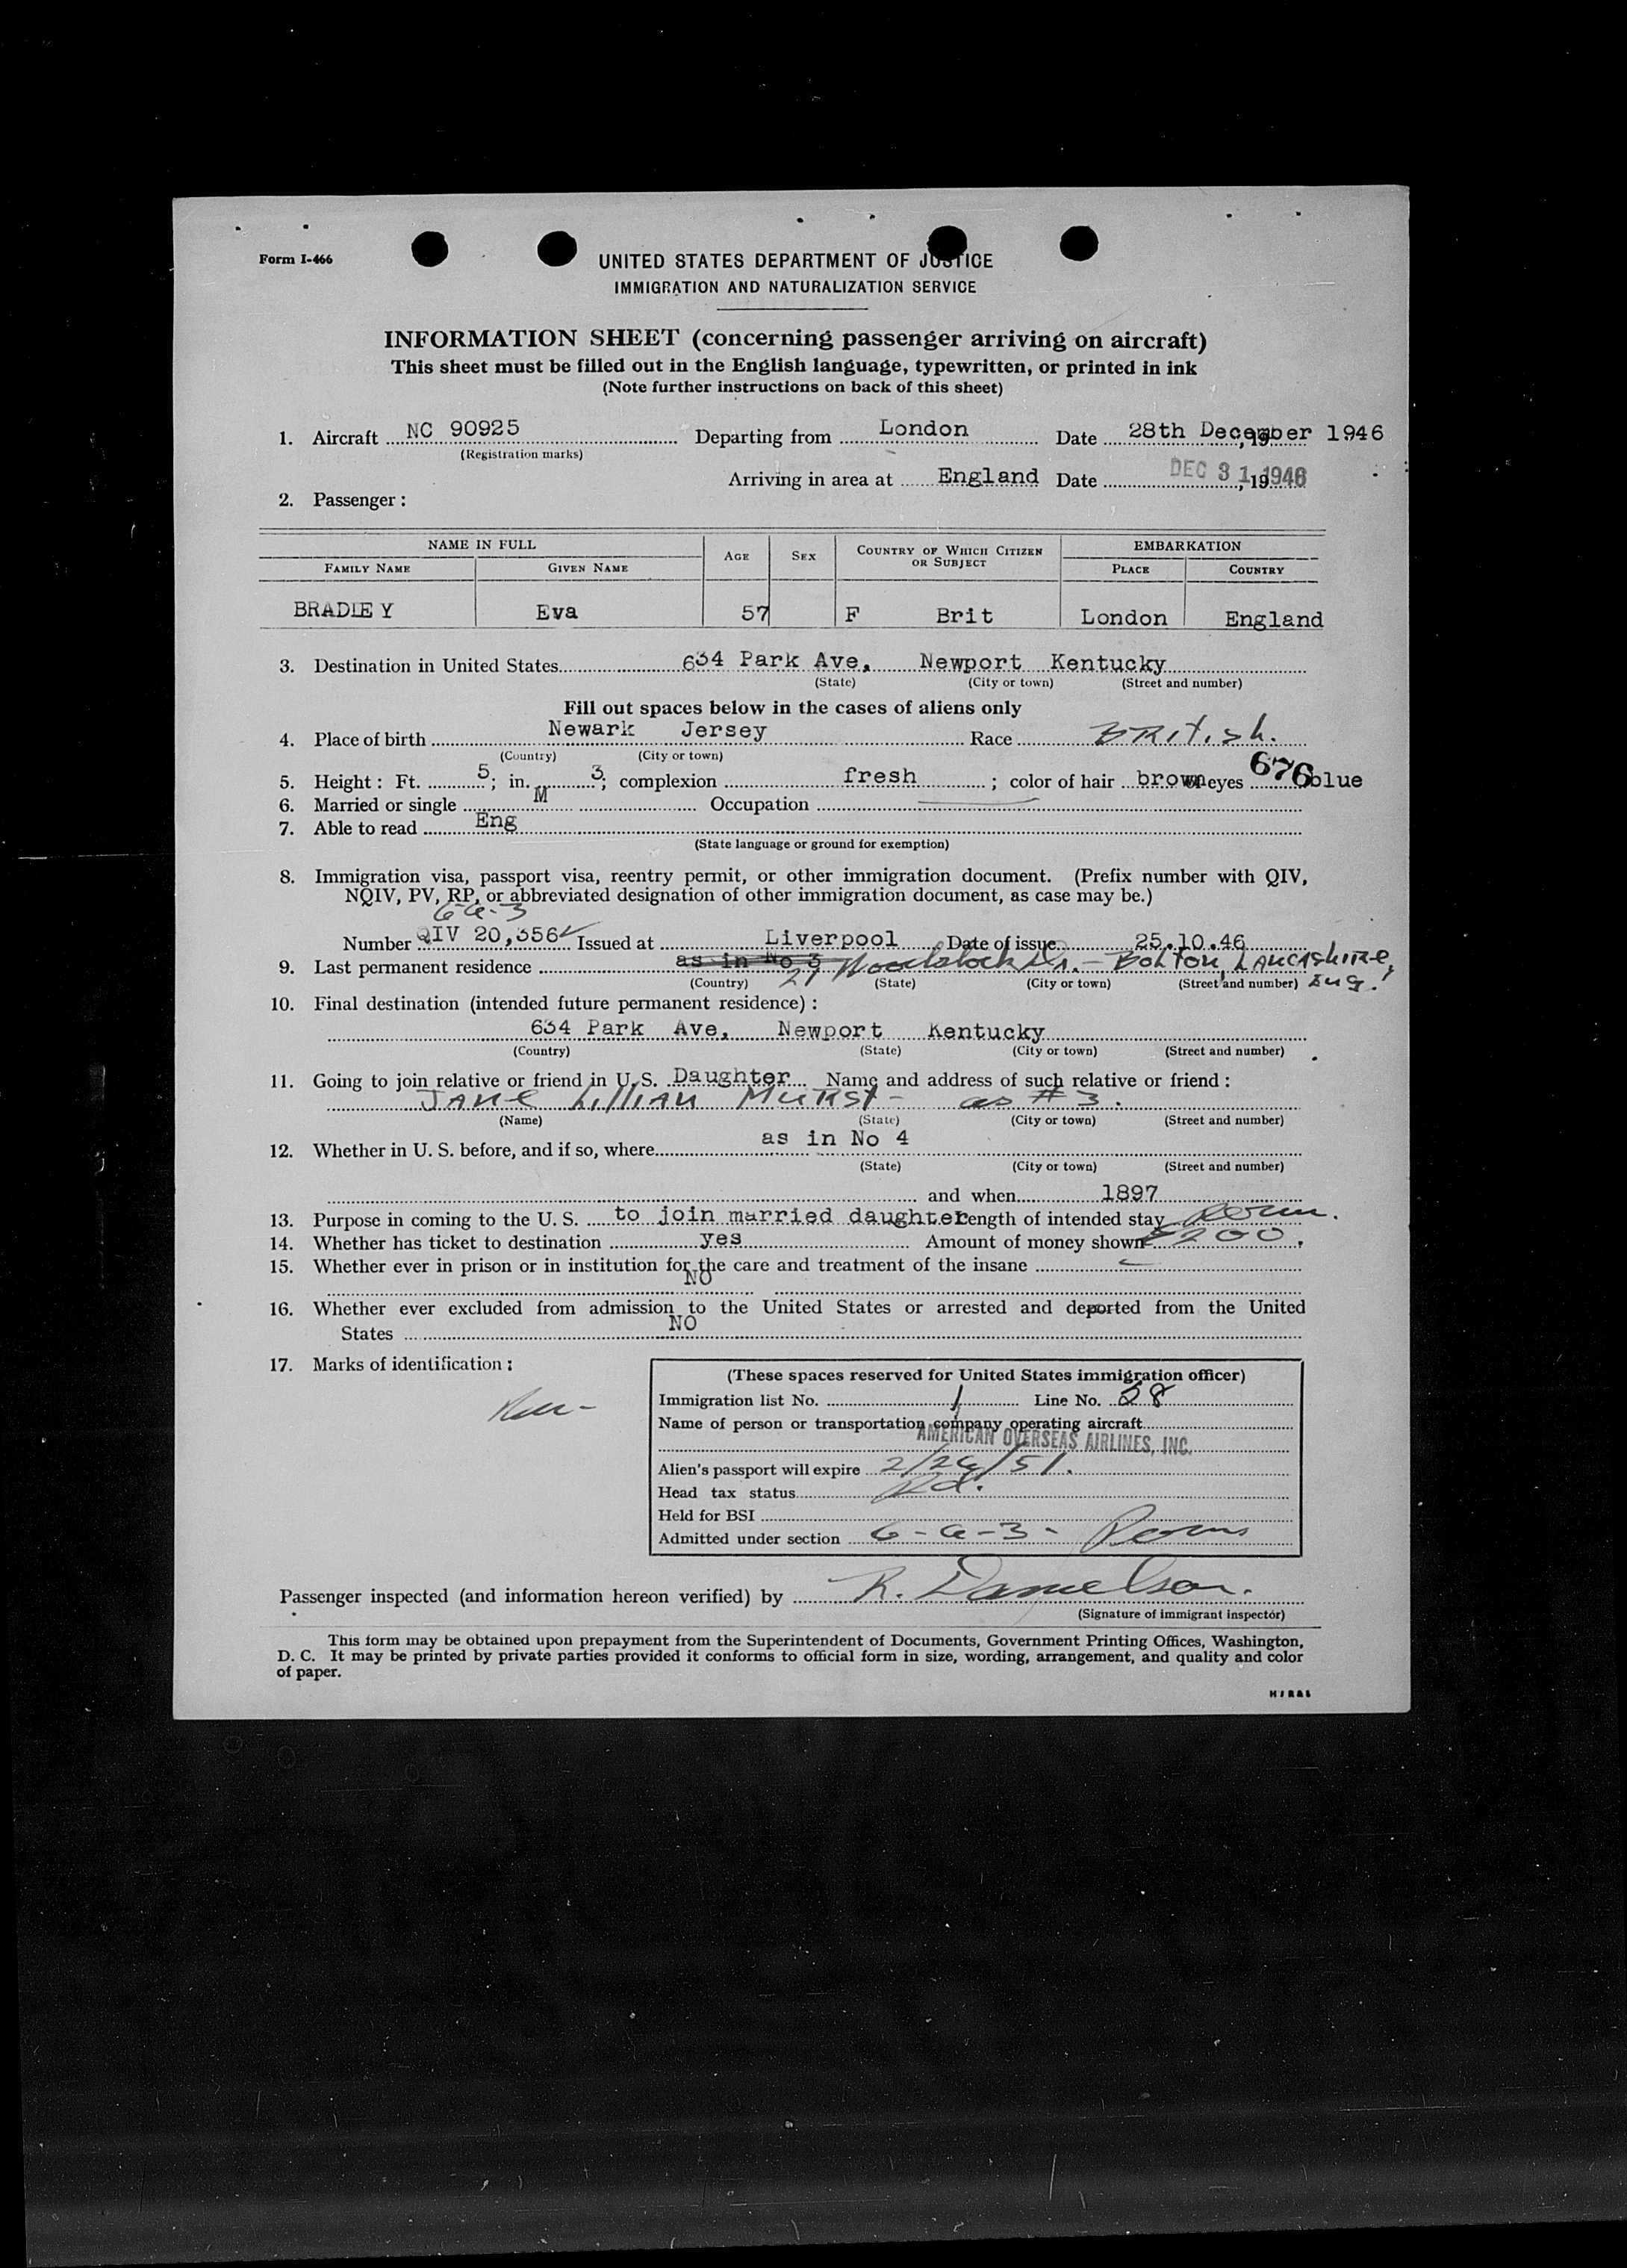 Form I-466
UNITED STATES DEPARTMENT OF JUSTICE
IMMIGRATION AND NATURALIZATION SERVICE
INFORMATION SHEET (concerning passenger arriving on aircraft)
This sheet must be filled out in the English language, typewritten, or printed in ink
(Note further instructions on back of this sheet)
1. Aircraft NC 90925 Departing from London Date 28th December 1946, 19
(Registration marks)
Arriving in area at England Date DEC 31 1946, 19
2. Passenger:
NAME IN FULL AGE SEX COUNTRY OF WHICH CITIZEN OR SUBJECT EMBARKATION
FAMILY NAME GIVEN NAME PLACE COUNTRY
BRADLEY Eva 57 F Brit London England
3. Destination in United States 634 Park Ave, Newport Kentucky
(State) (City or town) (Street and number)
Fill out spaces below in the cases of aliens only
4. Place of birth Newark Jersey Race British.
(Country) (City or town)
676
5. Height: Ft. 5; in. 3; complexion fresh; color of hair brown eyes blue
6. Married or single M Occupation
7. Able to read Eng
(State language or ground for exemption)
8. Immigration visa, passport visa, reentry permit, or other immigration document. (Prefix number with QIV,
NQIV, PV, RP, or abbreviated designation of other immigration document, as case may be.)
6-a-3
Number QIV 20,356 Issued at Liverpool Date of issue 25.10.46
9. Last permanent residence as in No 3 21 Woodstock Dr. - Bolton, Lancashire, Eng.
(Country) (State) (City or town) (Street and number)
10. Final destination (intended future permanent residence):
634 Park Ave, Newport Kentucky
(Country) (State) (City or town) (Street and number)
11. Going to join relative or friend in U. S. Daughter Name and address of such relative or friend:
Jane Lillian Murst - as #3.
(Name) (State) (City or town) (Street and number)
12. Whether in U. S. before, and if so, where as in No 4
(State) (City or town) (Street and number)
and when 1897
13. Purpose in coming to the U. S. to join married daughter Length of intended stay Perm.
14. Whether has ticket to destination yes Amount of money shown $200.
15. Whether ever in prison or in institution for the care and treatment of the insane
NO
16. Whether ever excluded from admission to the United States or arrested and deported from the United
States NO
17. Marks of identification:
(These spaces reserved for United States immigration officer)
Immigration list No. 1 Line No. 28
Name of person or transportation company operating aircraft
AMERICAN OVERSEAS AIRLINES, INC.
Alien's passport will expire 2/26/51.
Head tax status Pd.
Held for BSI
Admitted under section 6-a-3- Perm
Passenger inspected (and information hereon verified) by R. Danielson.
(Signature of immigrant inspector)
This form may be obtained upon prepayment from the Superintendent of Documents, Government Printing Offices, Washington,
D. C. It may be printed by private parties provided it conforms to official form in size, wording, arrangement, and quality and color
of paper.